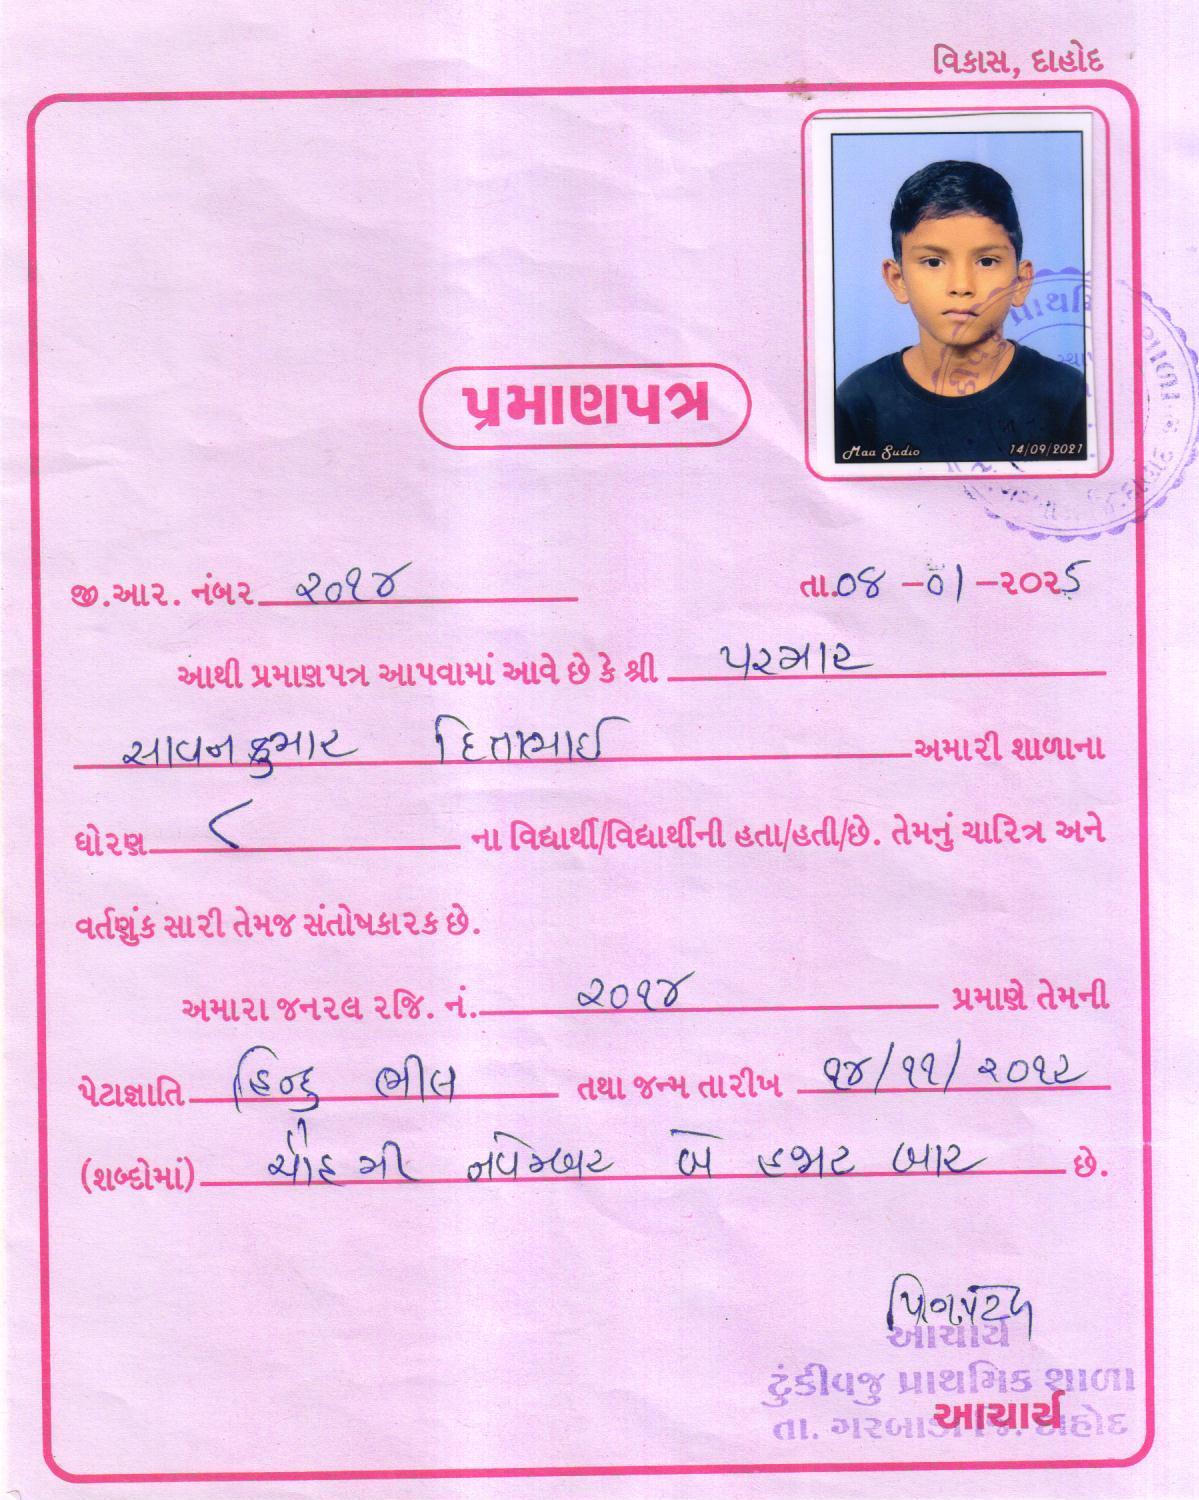 વિકાસ, દાહોદ
પ્રમાણપત્ર
Maa Sudio 14/09/2021
જી.આર. નંબર ૨૦૧૪ તા.08 -01 -૨૦૨5
આથી પ્રમાણપત્ર આપવામાં આવે છે કે શ્રી પરમાર
સાવનકુમાર દિતાભાઈ અમારી શાળાના
ધોરણ ૮ ના વિદ્યાર્થી/વિદ્યાર્થીની હતા/હતી/છે. તેમનું ચારિત્ર અને
વર્તણુંક સારી તેમજ સંતોષકારક છે.
અમારા જનરલ રજિ. નં. ૨૦૧૪ પ્રમાણે તેમની
પેટાજ્ઞાતિ હિન્દુ ભીલ તથા જન્મ તારીખ ૧૪/૧૧/૨૦૧૨
(શબ્દોમાં) ચૌદમી નવેમ્બર બે હજાર બાર છે.
આચાર્ય
ટુંડીવજુ પ્રાથમિક શાળા
તા. ગરબાડા જિ. દાહોદ
આચાર્ય